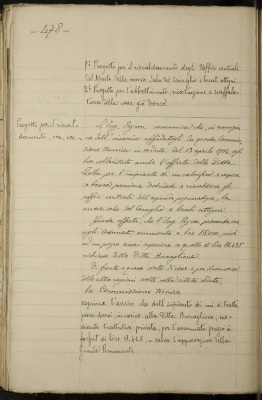 - 478 -
1° Progetto per il riscaldamento degli Uffici centrali
del Monte, della nuova Sala del Consiglio e locali attigui.
2° Progetto per l'abbattimento, ricostruzione e
della casa già
Progetto per il riscal-
damento, ecc. ecc.
L'Ing. Peyron comunica che, in
ne all'incarico affidatogli da questa Commis-
sione tecnica in seduta del 13 aprile 1904, egli
ha collaudato anche l'offerta della Ditta
Zolla per l'impianto di un calorifero a vapore
a bassa pressione, destinato a riscaldare gli
uffici centrali dell'azienda pignoratizia, la
nuova sala del Consiglio e locali attigui.
Questa offerta, che l'Ing. Peyron presenta con
ogli ordinati, ammonta a lire 15.000, cioè
ad un prezzo assai superiore a quello di lire 11.425
richieste dalla Ditta Buscaglione.
Di fronte a questo stato di cose e per
altre ragioni svolte nella seduta
La Commissione tecnica
esprime l'avviso che dell'impianto di cui si tratta
possa darsi incarico alla Ditta Buscaglione, me-
diante trattativa privata, per l'accennato prezzo a
forfait di lire 11.425 - salva l'approvazione della
Giunta Permanente.